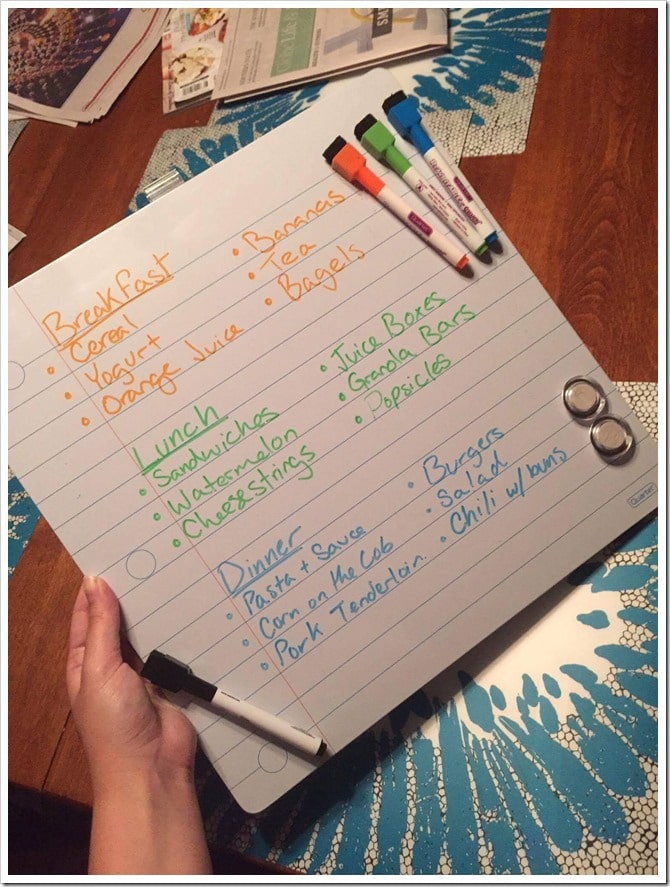 Breakfast
• Cereal
• Yogurt
• Orange Juice
• Bananas
• Tea
• Bagels
Lunch
• Sandwiches
• Watermelon
• Cheesestrings
• Juice Boxes
• Granola Bars
• Popsicles
Dinner
• Pasta + Sauce
• Corn on the Cob
• Pork Tenderloin
• Burgers
• Salad
• Chili w/ buns
Quartet